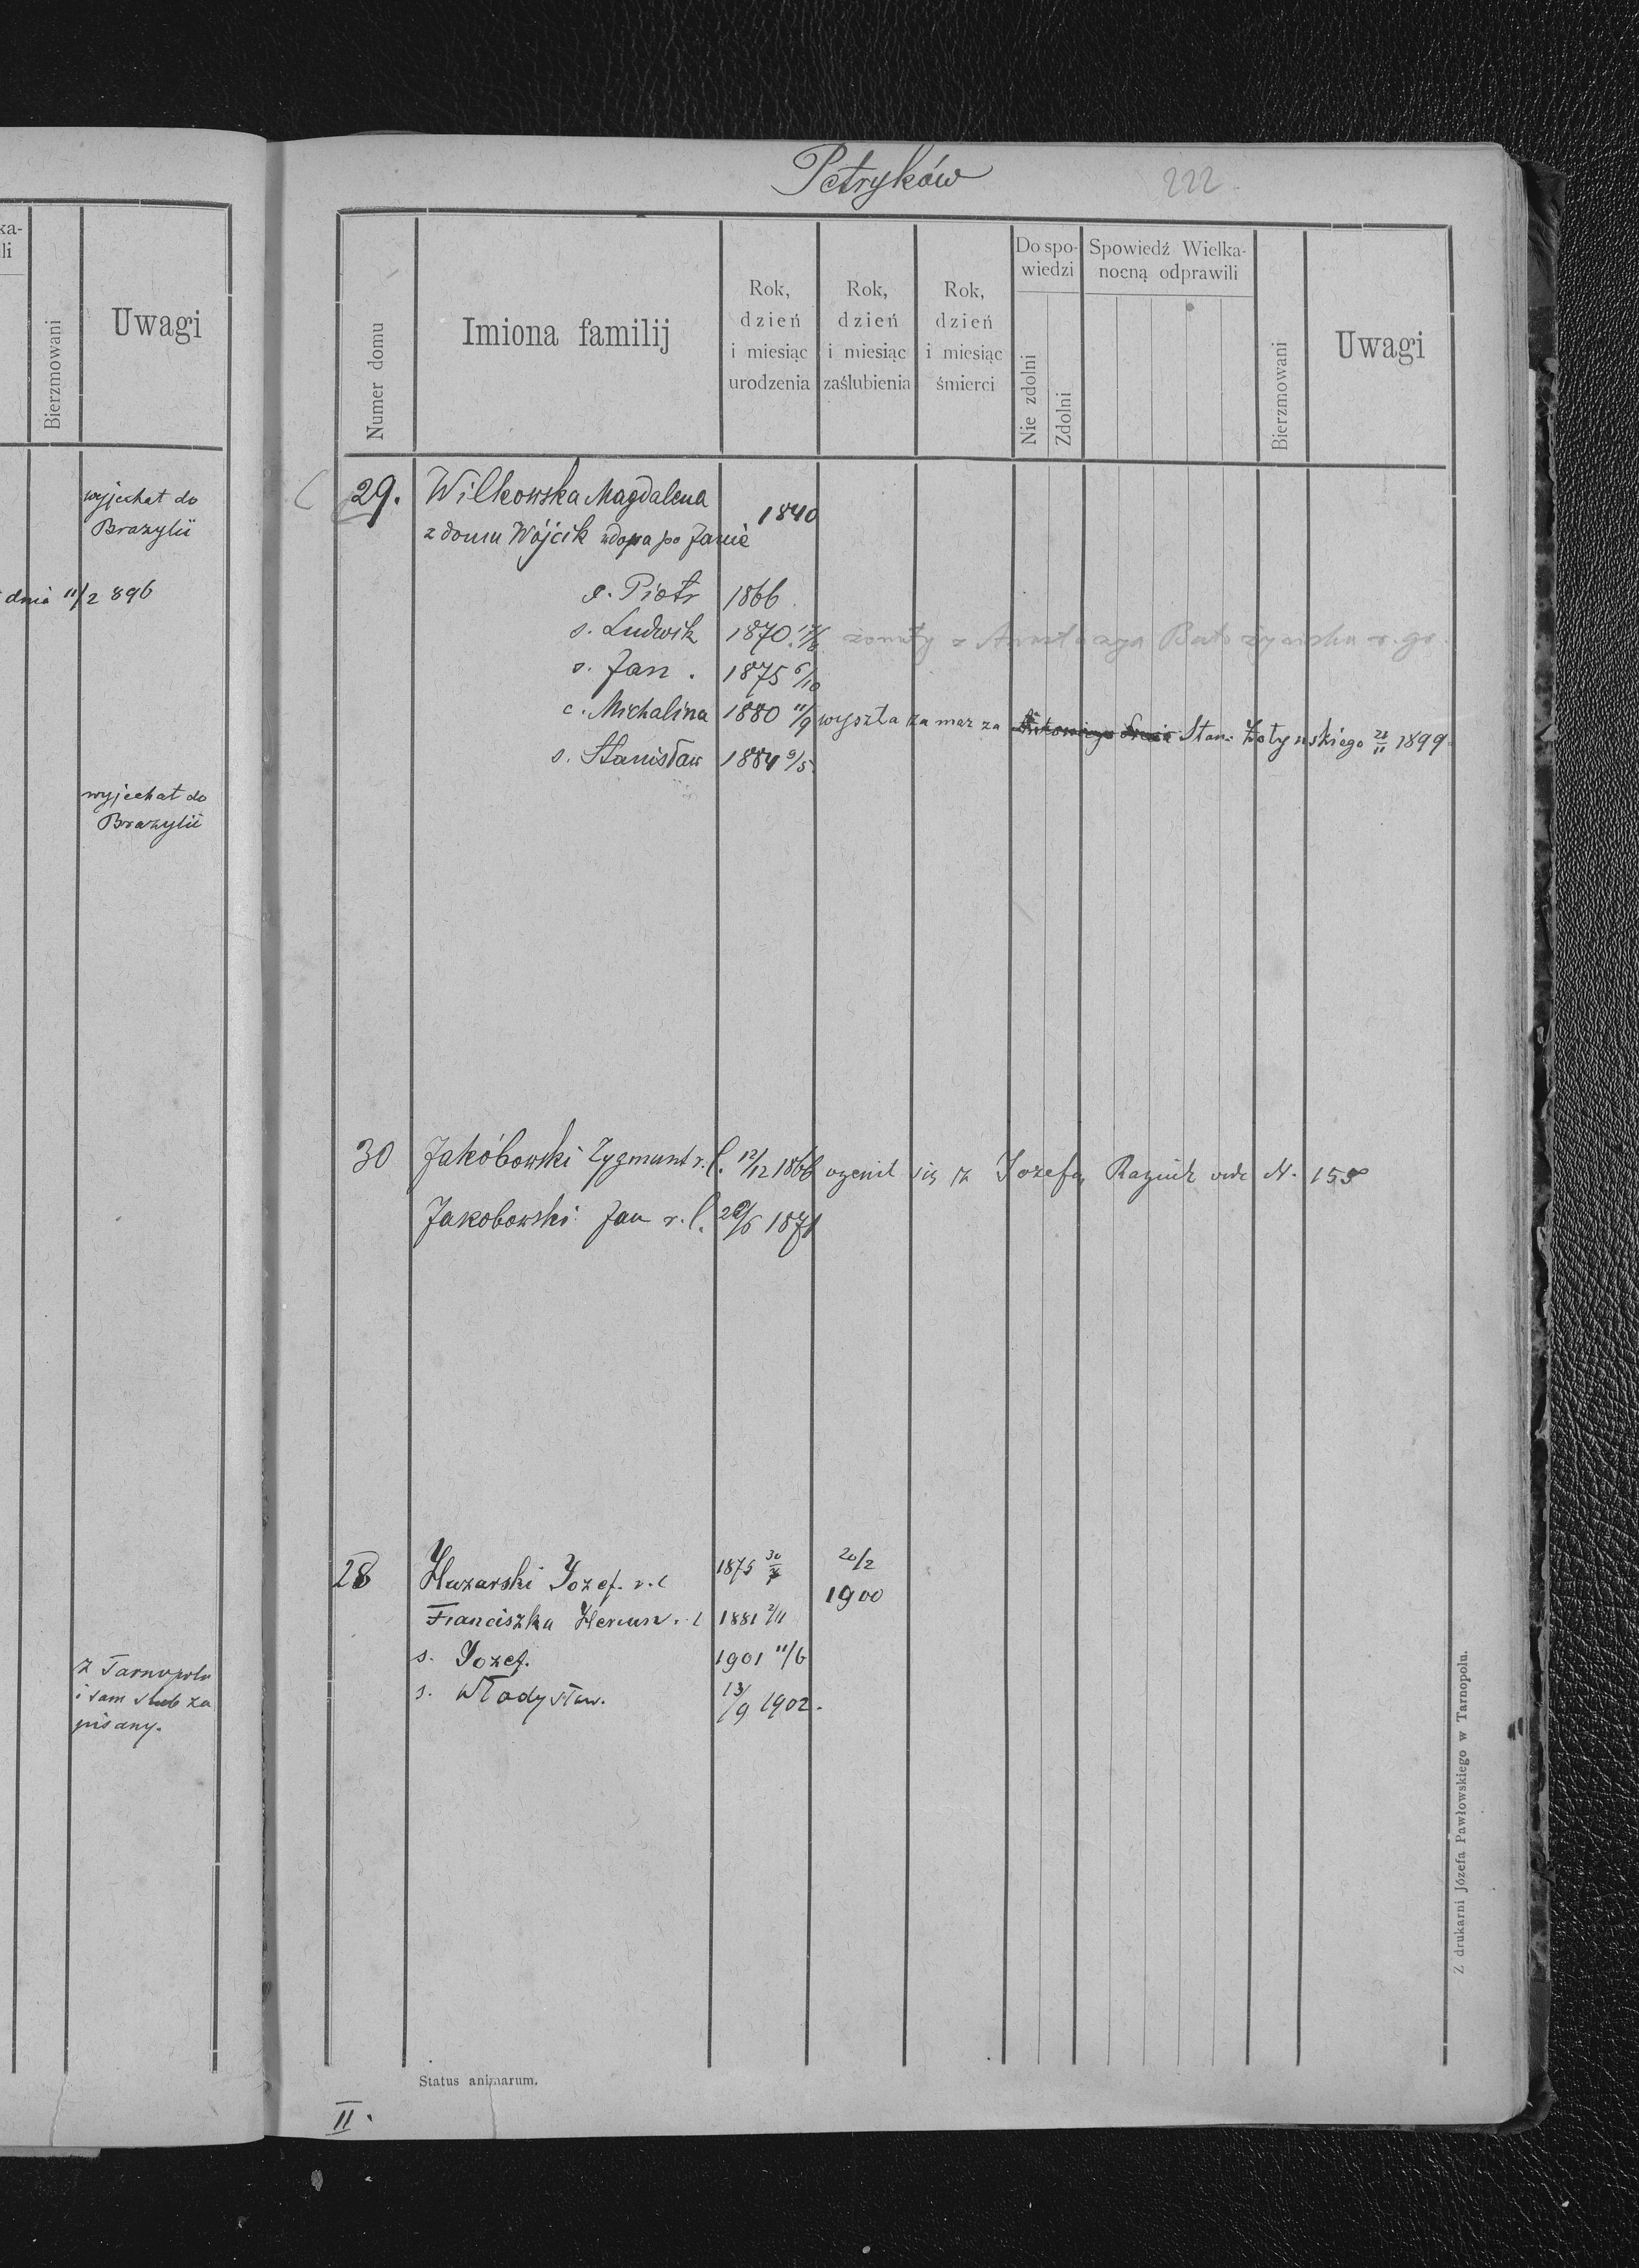 ka-
li
Bierzmowani
Uwagi
wyjechał do
Brazylii
dnia 11/2 896
wyjechał do
Brazylii
z Tarnopola
i sam slub za
pisany.
Petryków
222
Numer domu
Imiona familij
Rok,
dzień
i miesiąc
urodzenia
Rok,
dzień
i miesiąc
zaślubienia
Rok,
dzień
i miesiąc
śmierci
Do spo-
wiedzi
Nie zdolni
Zdolni
Spowiedź Wielka-
nocną odprawili
Bierzmowani
Uwagi
29. Wilkowska Magdalena 1840
z domu Wójcik wdowa po Janie
s. Piotr 1866
s. Ludwik 1870 żonaty z
s. Jan. 1875 6/10
c. Michalina 1880 11/9 wyszła za mąz za Stan. Żotynskiego 28/11 1899
s. Stanisław 1884 9/5.
30 Jakóbowski Zygmunt r. l. 12/12 1866 ozenił się z Jozefą vide N. 155
Jakobowski Jan r. l. 1871
28 Huzarski Jozef. r. l 1875 20/2
1900
Franciszka r. l 1881 2/11
s. Jozef. 1901 11/6
s. Władysław. 13/9 1902.
Status animarum.
II.
Z drukarni Józefa Pawłowskiego w Tarnopolu.